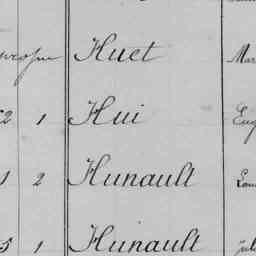 Huet Mar
2 1 Hui Eug
1 2 Hunault Lou
5 1 Hunault Jul